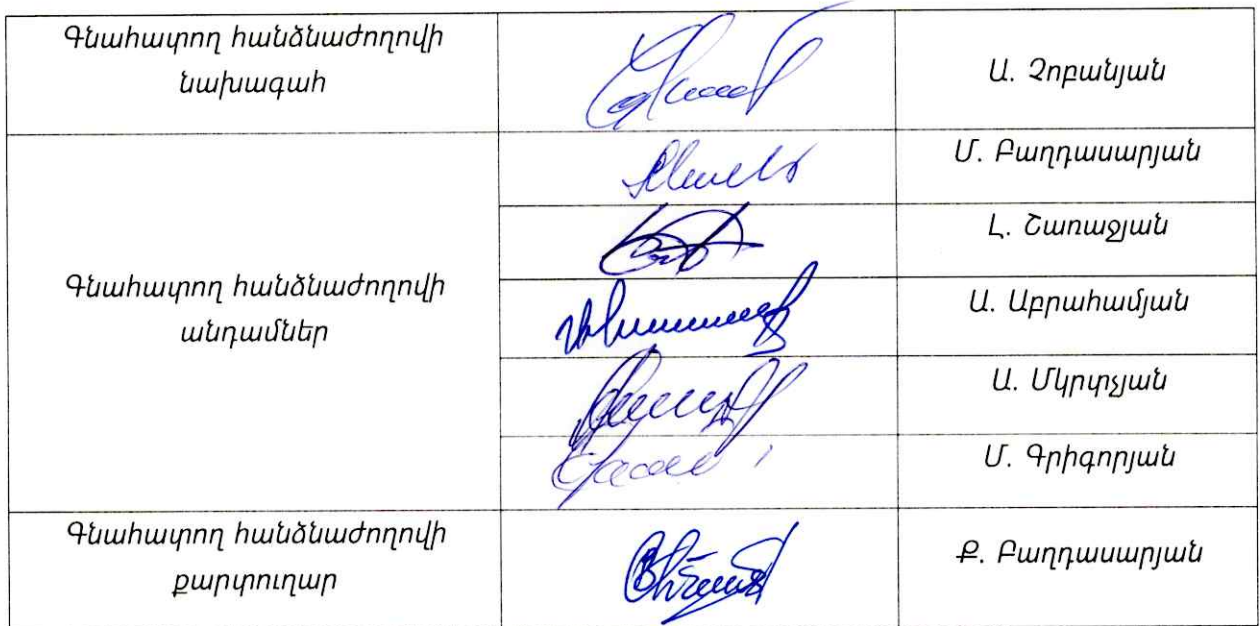 Գնահատող հանձնաժողովի
նախագահ
Ա. Չոբանյան
Գնահատող հանձնաժողովի
անդամներ
Մ. Բաղդասարյան
Լ. Շառաջյան
Ա. Աբրահամյան
Ա. Մկրտչյան
Մ. Գրիգորյան
Գնահատող հանձնաժողովի
քարտուղար
Ք. Բաղդասարյան